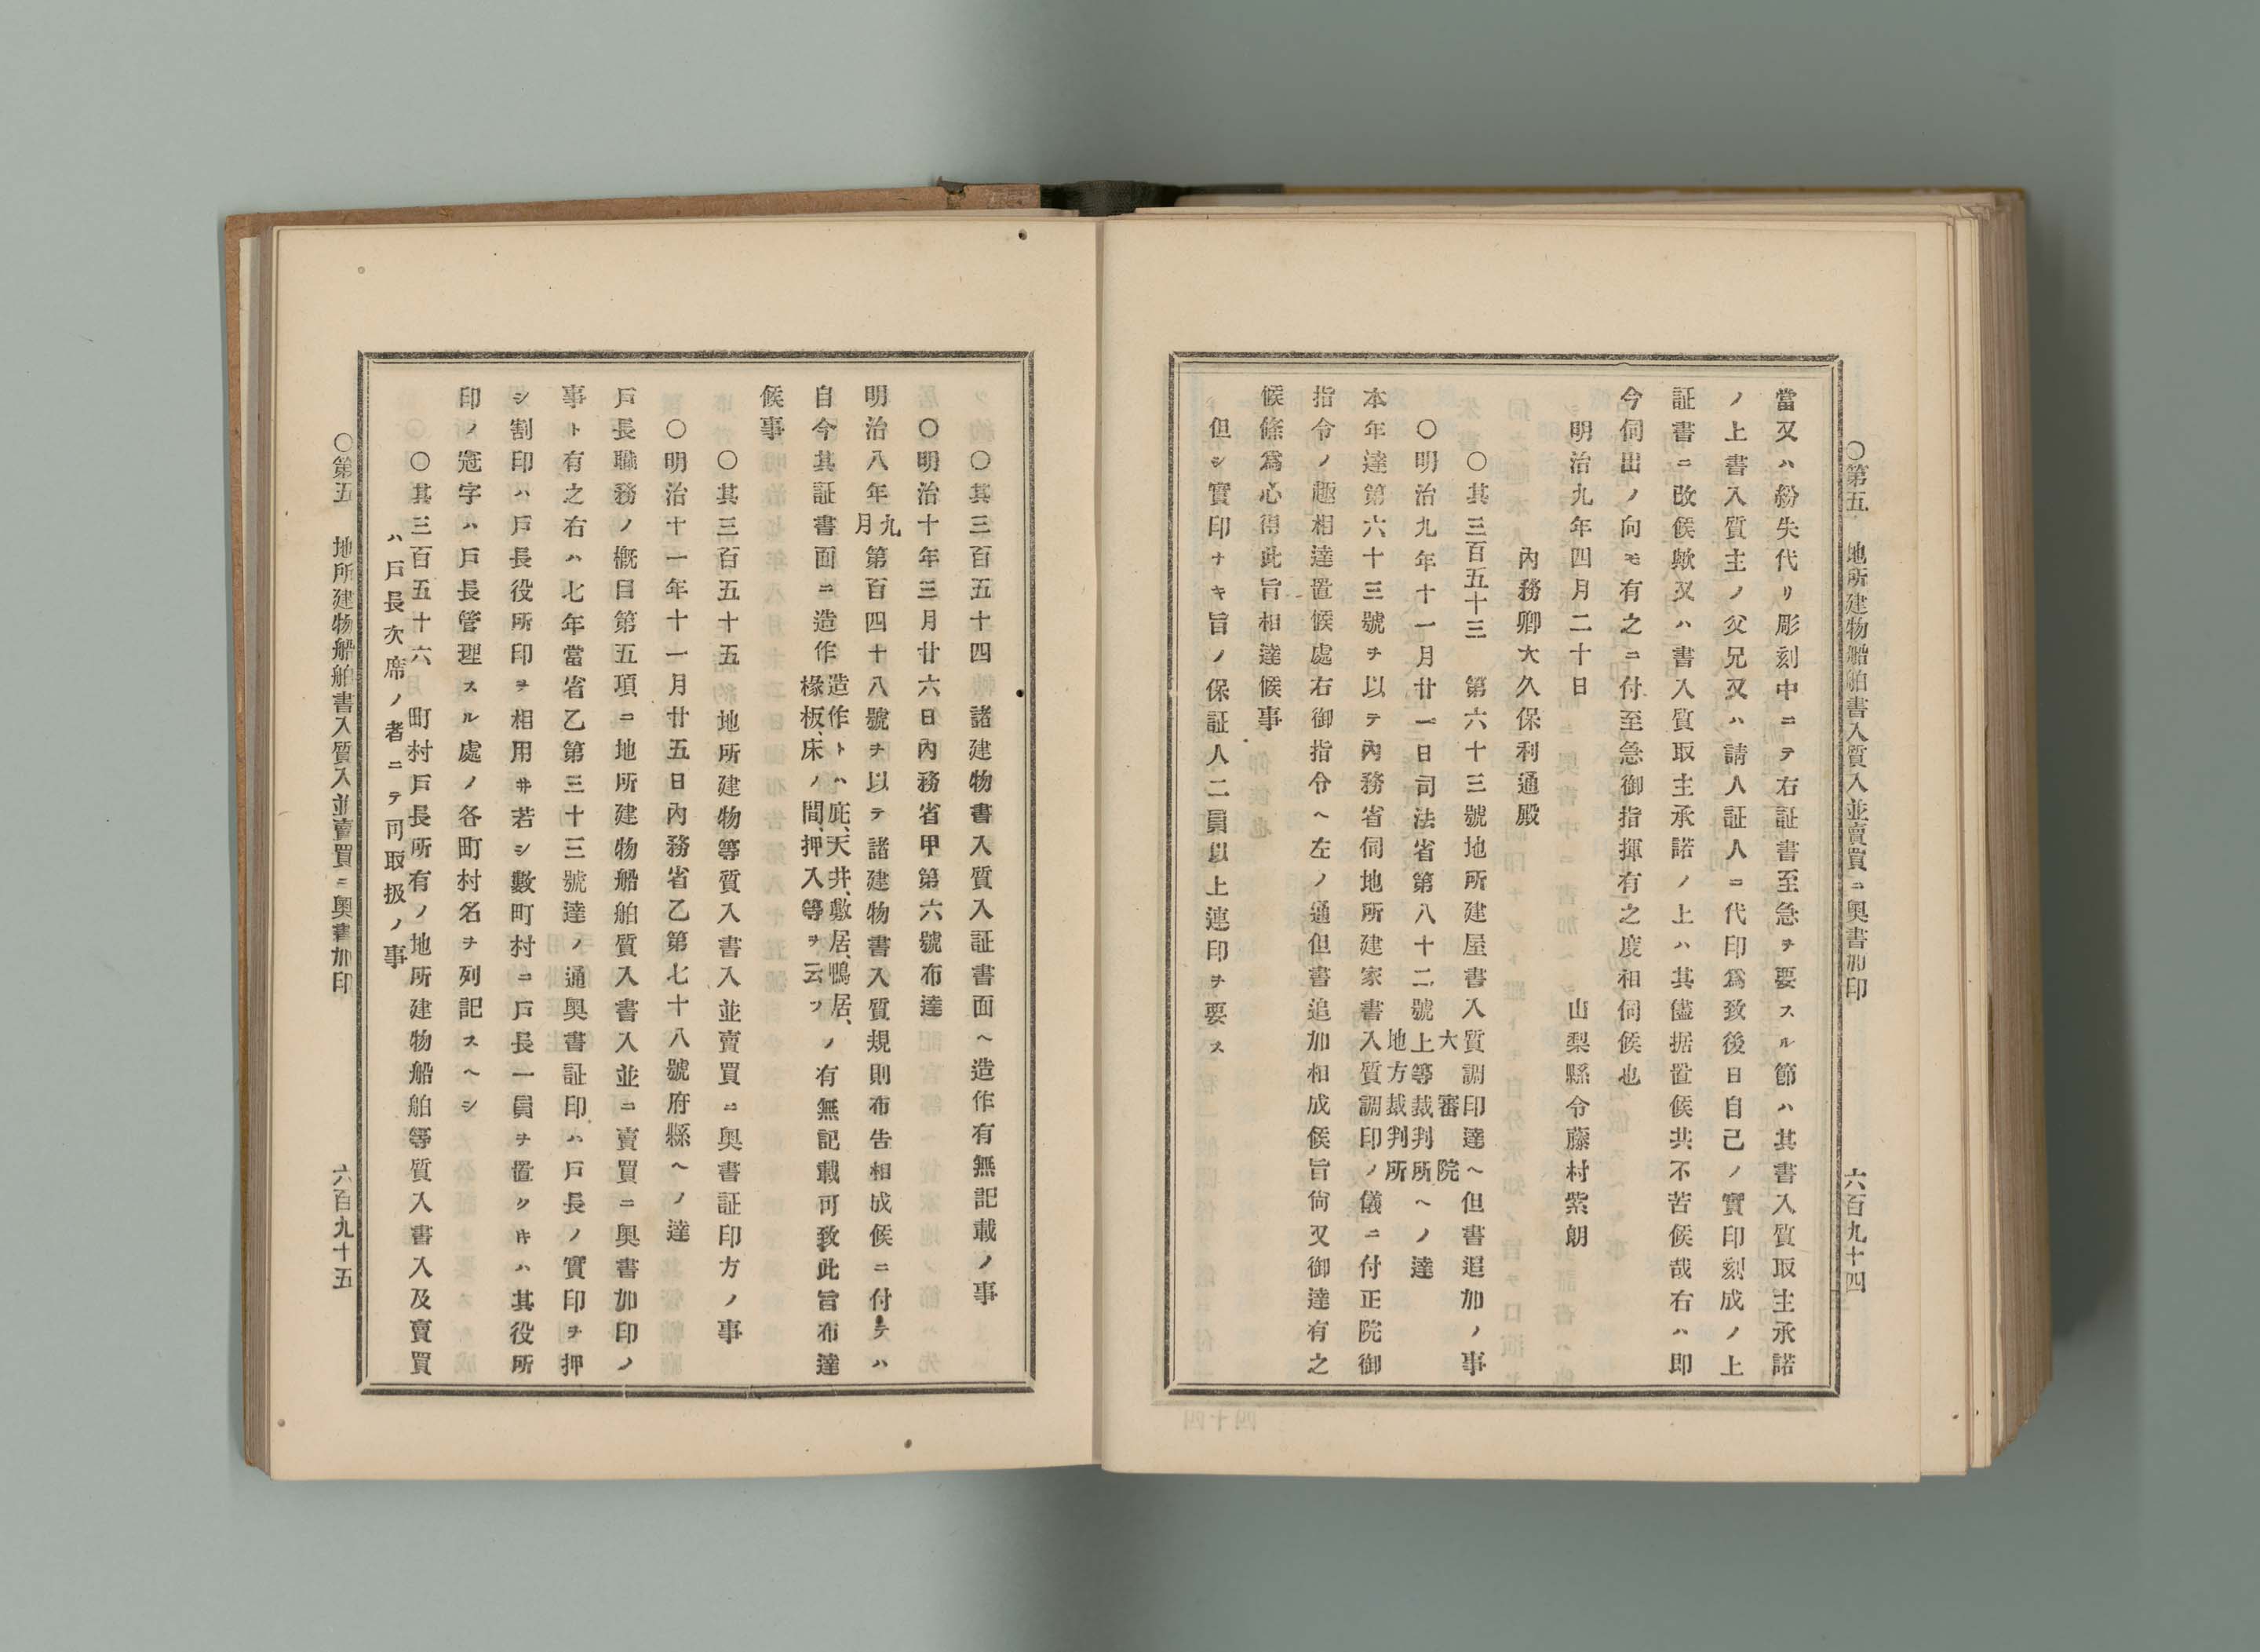 ○第五　地所建物船舶書入質入並賣買ニ奧書加印　六百九十四
當又ハ紛失代リ彫刻中ニテ右証書至急ヲ要スル節ハ其書入質取主承諾
ノ上書入質主ノ父兄又ハ請人証人ニ代印爲致後日自己ノ實印刻成ノ上
証書ニ改候歟又ハ書入質取主承諾ノ上ハ其儘据置候共不苦候哉右ハ即
今伺出ノ向モ有之ニ付至急御指揮有之度相伺候也
明治九年四月二十日　山梨縣令藤村紫朗
內務卿大久保利通殿
○其三百五十三　第六十三號地所建屋書入質調印達ヘ但書追加ノ事
○明治九年十一月廿一日司法省第八十二號大審院上等裁判所地方裁判所ヘノ達
本年達第六十三號ヲ以テ內務省伺地所建家書入質調印ノ儀ニ付正院御
指令ノ趣相達置候處右御指令ヘ左ノ通但書追加相成候旨尙又御達有之
候條爲心得此旨相達候事
但シ實印ナキ旨ノ保証人二員以上連印ヲ要ス
○其三百五十四　諸建物書入質入証書面ヘ造作有無記載ノ事
○明治十年三月廿六日內務省甲第六號布達
明治八年九月第百四十八號ヲ以テ諸建物書入質規則布告相成候ニ付テハ
自今其証書面ニ造作造作トハ庇、天井、敷居、鴨居、椽板、床ノ間、押入等ヲ云フノ有無記載可致此旨布達
候事
○其三百五十五　地所建物等質入書入並賣買ニ奧書証印方ノ事
○明治十一年十一月廿五日內務省乙第七十八號府縣ヘノ達
戶長職務ノ概目第五項ニ地所建物船舶質入書入並ニ賣買ニ奧書加印ノ
事ト有之右ハ七年當省乙第三十三號達ノ通奧書証印ハ戶長ノ實印ヲ押
シ割印ハ戶長役所印ヲ相用井若シ數町村ニ戶長一員ヲ置クトキハ其役所
印ノ冠字ハ戶長管理スル處ノ各町村名ヲ列記スヘシ
○其三百五十六　町村戶長所有ノ地所建物船舶等質入書入及賣買
ハ戶長次席ノ者ニテ可取扱ノ事
○第五　地所建物船舶書入質入並賣買ニ奧書加印　六百九十五